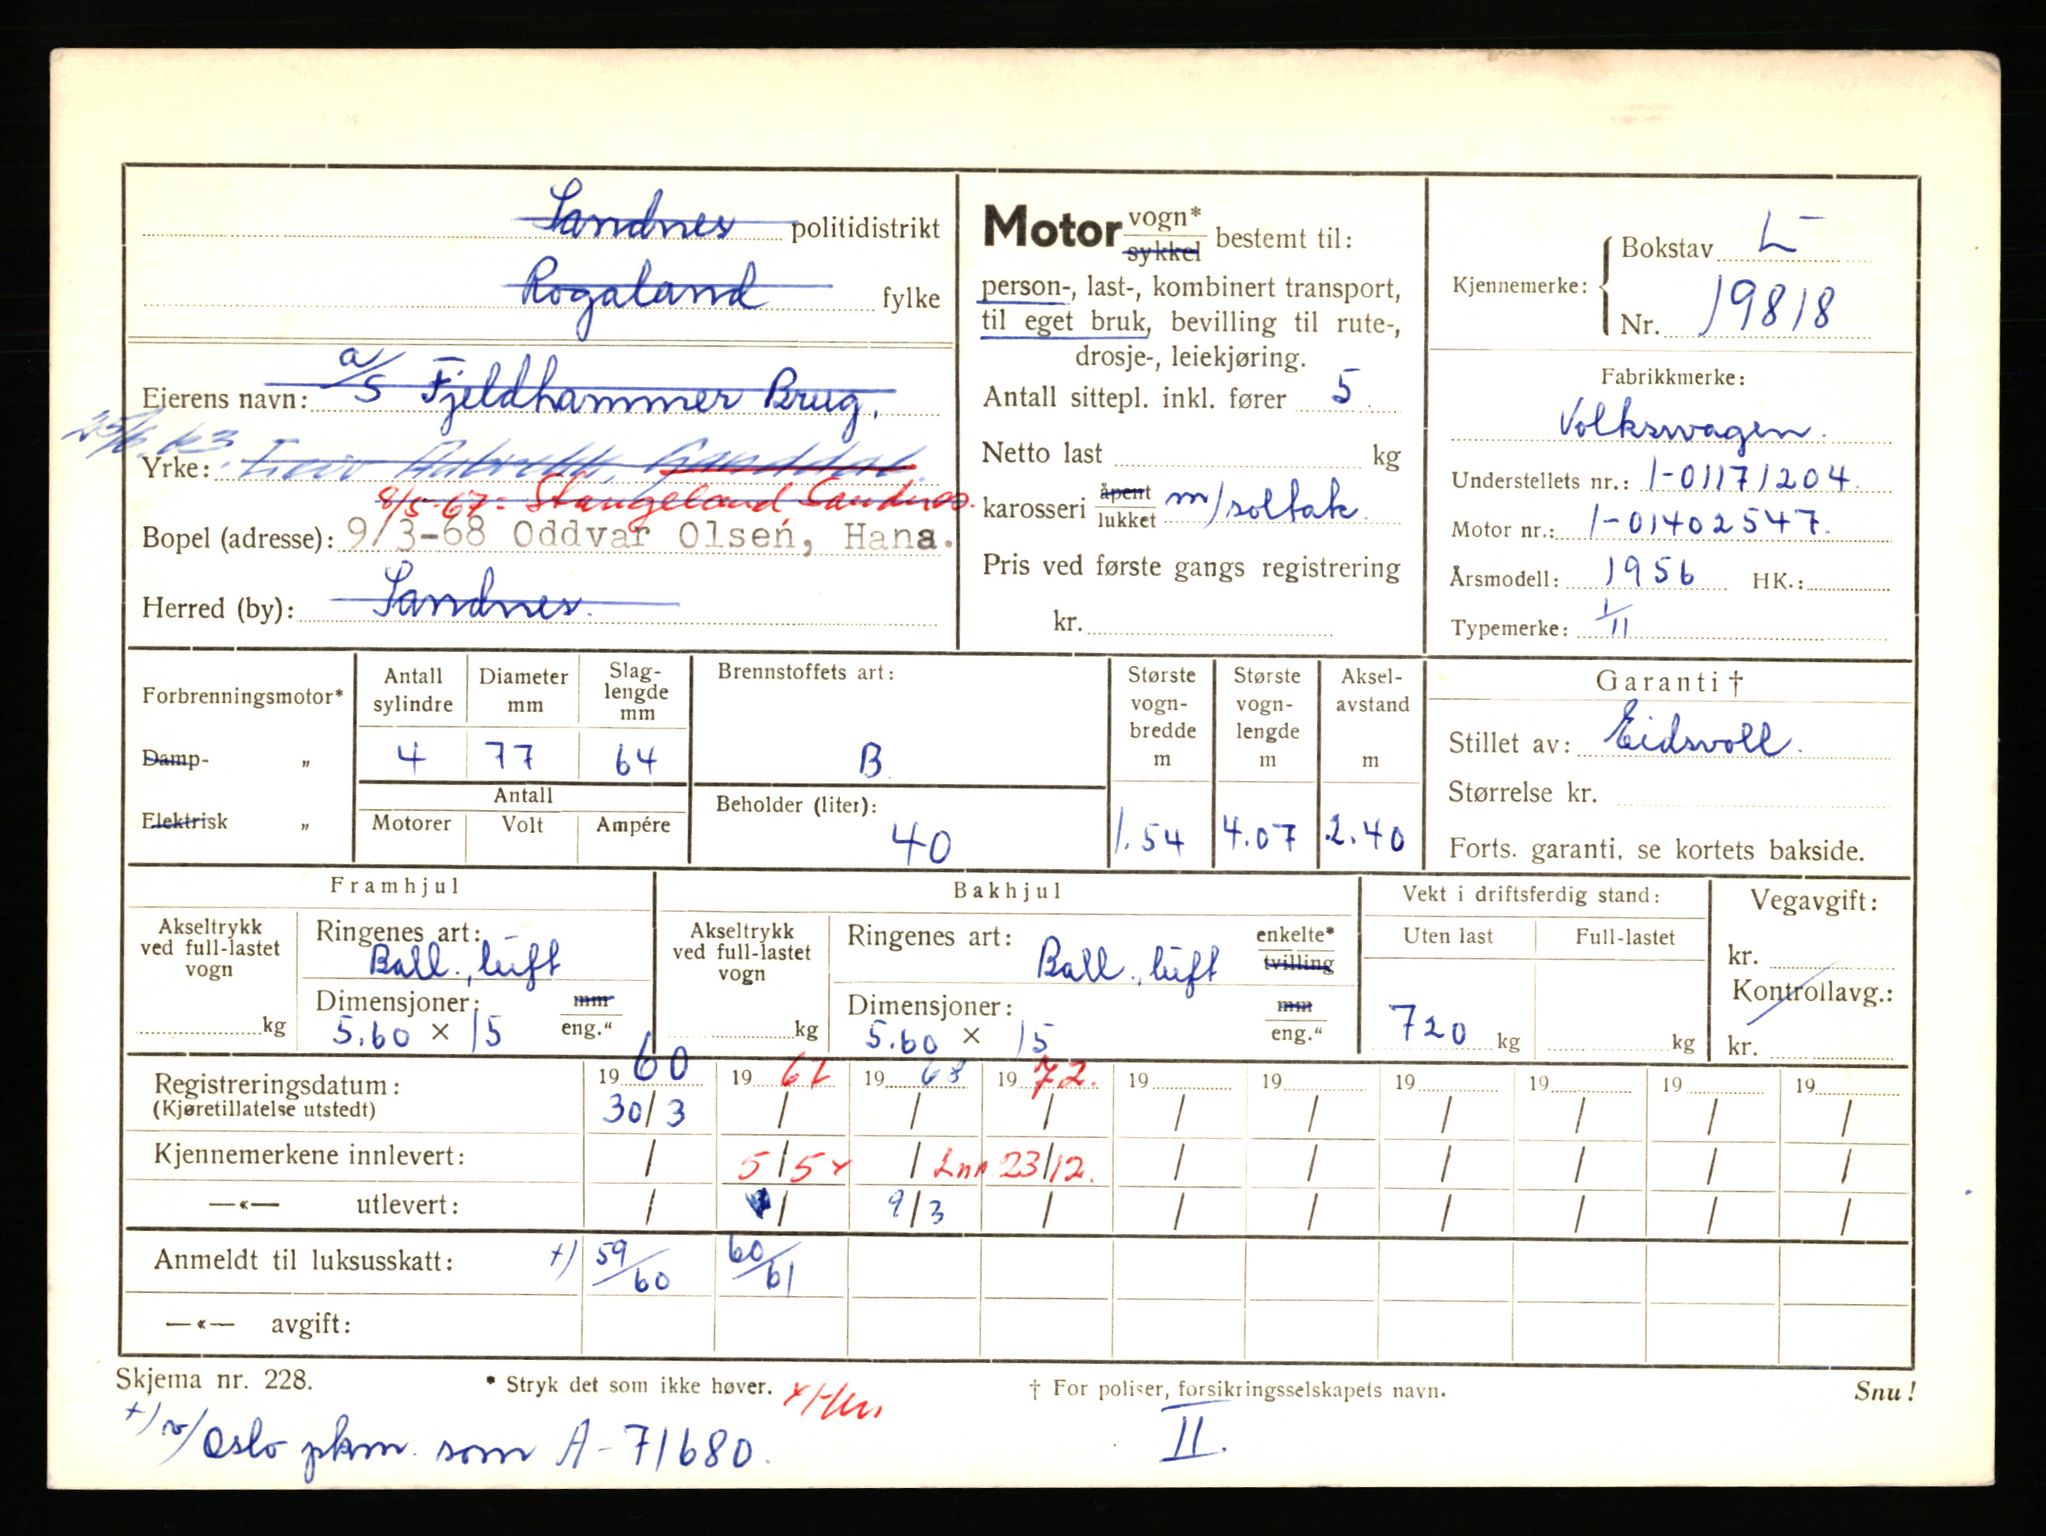 Sandnes politidistrikt
Rogaland fylke
Eierens navn: a/s Fjeldhammer Brug.
25/6.63
Yrke:
8/5-67: Stangeland Sandnes.
Bopel (adresse): 9/3-68 Oddvar Olsen, Hana.
Herred (by): Sandnes.
Motor vogn* / sykkel bestemt til:
person-, last-, kombinert transport,
til eget bruk, bevilling til rute-,
drosje-, leiekjøring.
Antall sittepl. inkl. fører 5
Netto last kg
karosseri åpent / lukket m/soltak.
Pris ved første gangs registrering
kr.
Kjennemerke: Bokstav L-
Nr. 19818
Fabrikkmerke:
Volkswagen.
Understellets nr.: 1-01171204.
Motor nr.: 1-01402547.
Årsmodell: 1956 HK.:
Typemerke: 1/11
Forbrenningsmotor*
Damp- „
Elektrisk „
Antall sylindre 4
Diameter mm 77
Slag-lengde mm 64
Antall
Motorer Volt Ampére
Brennstoffets art:
B
Beholder (liter):
40
Største vogn-bredde m 1.54
Største vogn-lengde m 4.07
Aksel-avstand m 2.40
Garanti †
Stillet av: Eidsvoll.
Størrelse kr.
Forts. garanti, se kortets bakside.
Framhjul
Akseltrykk ved full-lastet vogn
kg
Ringenes art:
Ball., luft
Dimensjoner: mm / eng."
5.60 × 15
Bakhjul
Akseltrykk ved full-lastet vogn
kg
Ringenes art: enkelte* / tvilling
Ball., luft
Dimensjoner: mm / eng."
5.60 × 15
Vekt i driftsferdig stand:
Uten last Full-lastet
720 kg kg
Vegavgift:
kr.
Kontrollavg.:
kr.
Registreringsdatum: 19 60 19 61 19 68 19 72. 19 19 19 19 19 19
(Kjøretillatelse utstedt) 30/3 / / / / / / / / /
Kjennemerkene innlevert: / 5/5 x / Inn 23/12. / / / / / /
—«— utlevert: / / 9/3 / / / / / / /
Anmeldt til luksusskatt: +) 59/60 60/61
—«— avgift:
Skjema nr. 228. * Stryk det som ikke høver. † For poliser, forsikringsselskapets navn. Snu!
+) v/ Oslo pkm. som A-71680. II.